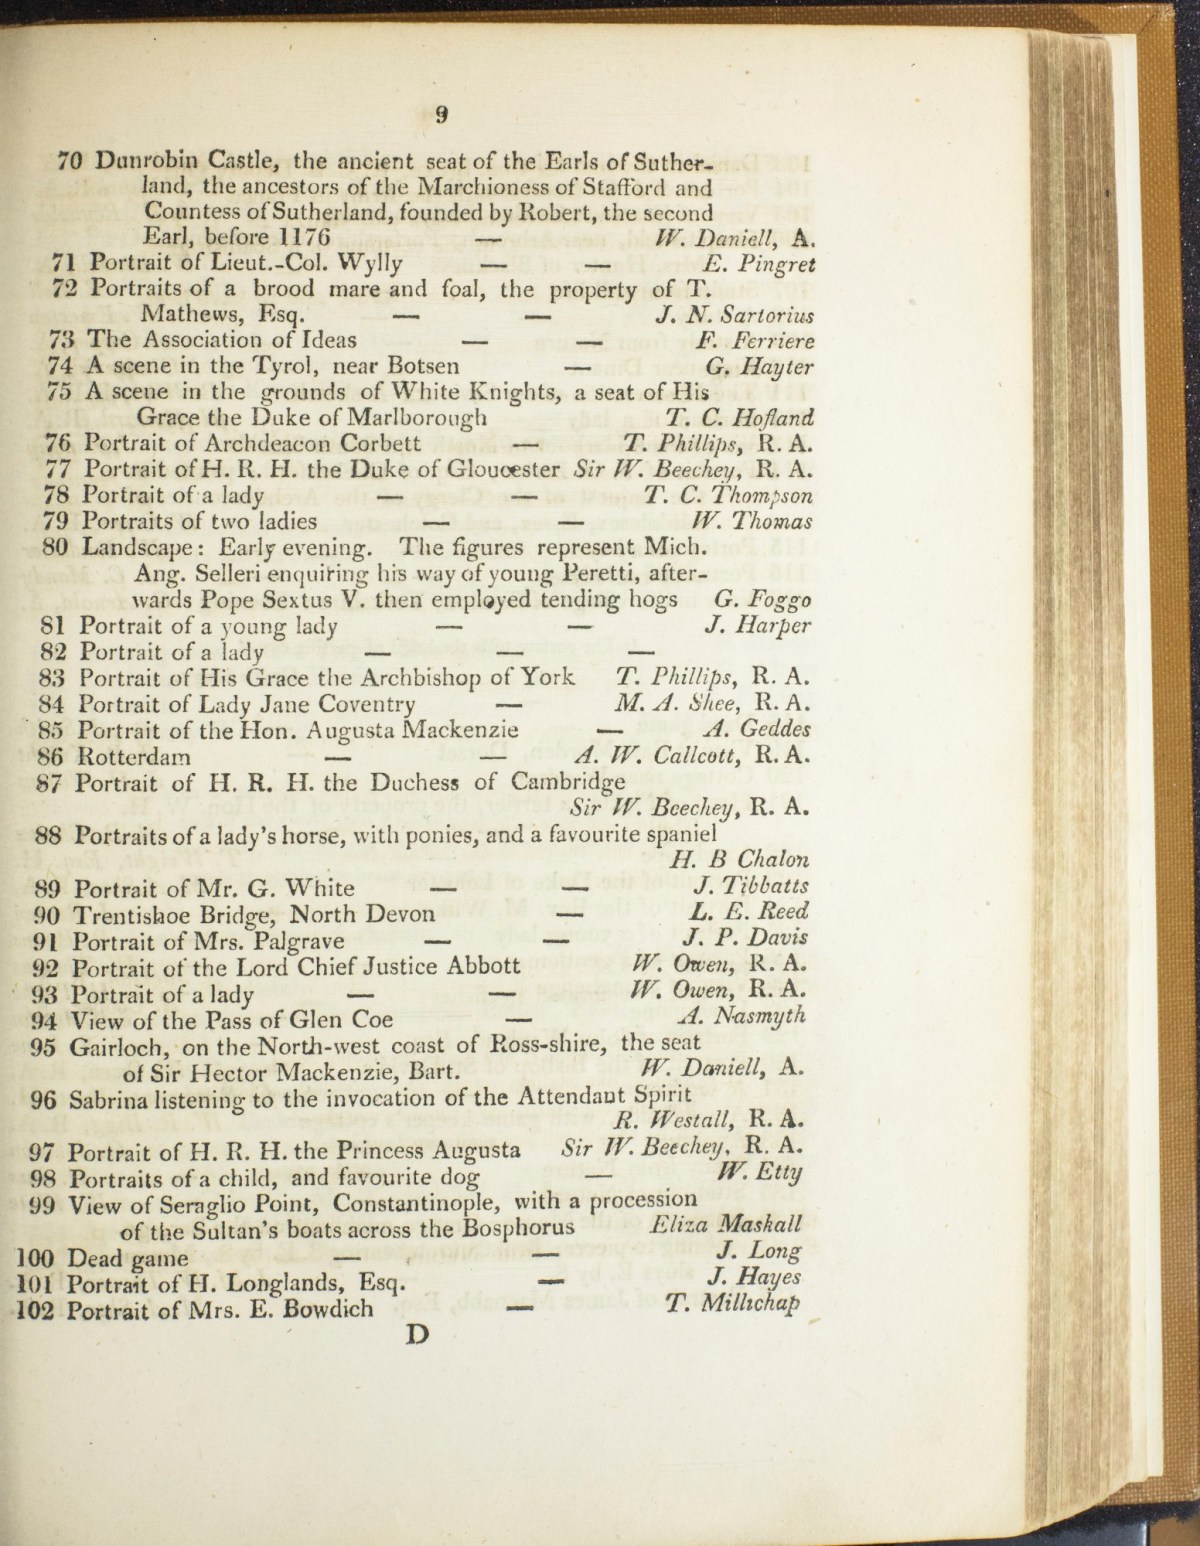 9
70 Dunrobin Castle, the ancient seat of the Earls of Suther-
land, the ancestors of the Marchioness of Stafford and
Countess of Sutherland, founded by Robert, the second
Earl, before 1176 — W. Daniell, A.
71 Portrait of Lieut.-Col. Wylly — — E. Pingret
72 Portraits of a brood mare and foal, the property of T.
Mathews, Esq. — — J. N. Sartorius
73 The Association of Ideas — — F. Ferriere
74 A scene in the Tyrol, near Botsen — G. Hayter
75 A scene in the grounds of White Knights, a seat of His
Grace the Duke of Marlborough T. C. Hofland
76 Portrait of Archdeacon Corbett — T. Phillips, R. A.
77 Portrait of H. R. H. the Duke of Gloucester Sir W. Beechey, R. A.
78 Portrait of a lady — — T. C. Thompson
79 Portraits of two ladies — — W. Thomas
80 Landscape: Early evening. The figures represent Mich.
Ang. Selleri enquiring his way of young Peretti, after-
wards Pope Sextus V. then employed tending hogs G. Foggo
81 Portrait of a young lady — — J. Harper
82 Portrait of a lady — — —
83 Portrait of His Grace the Archbishop of York T. Phillips, R. A.
84 Portrait of Lady Jane Coventry — M. A. Shee, R. A.
85 Portrait of the Hon. Augusta Mackenzie — A. Geddes
86 Rotterdam — — A. W. Callcott, R. A.
87 Portrait of H. R. H. the Duchess of Cambridge
Sir W. Beechey, R. A.
88 Portraits of a lady's horse, with ponies, and a favourite spaniel
H. B Chalon
89 Portrait of Mr. G. White — — J. Tibbatts
90 Trentishoe Bridge, North Devon — L. E. Reed
91 Portrait of Mrs. Palgrave — — J. P. Davis
92 Portrait of the Lord Chief Justice Abbott W. Owen, R. A.
93 Portrait of a lady — — W. Owen, R. A.
94 View of the Pass of Glen Coe — A. Nasmyth
95 Gairloch, on the North-west coast of Ross-shire, the seat
of Sir Hector Mackenzie, Bart. W. Daniell, A.
96 Sabrina listening to the invocation of the Attendant Spirit
R. Westall, R. A.
97 Portrait of H. R. H. the Princess Augusta Sir W. Beechey, R. A.
98 Portraits of a child, and favourite dog — W. Etty
99 View of Seraglio Point, Constantinople, with a procession
of the Sultan's boats across the Bosphorus Eliza Maskall
100 Dead game — — J. Long
101 Portrait of H. Longlands, Esq. — J. Hayes
102 Portrait of Mrs. E. Bowdich — T. Millichap
D